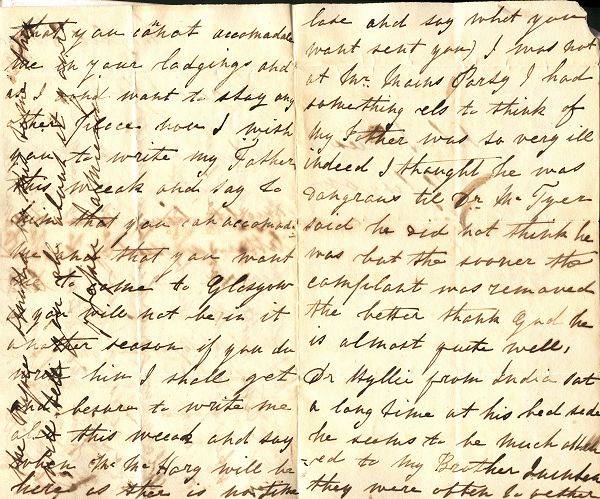 that you cannot accomadate
me in your lodgings and
as I dond want to stay any
other place now I wish
you to write my Father
this weeak and say to
him that you can accomadate
me and that you want
me to come to Glesgow
as you will not be in it
another season if you do
write him I shall get
and besure to write me
after this weeak and say
when Mr Mc Harg will be
here as thee is no time
lose and say what you
want sent you) I was not
at Mr Mains Party I had
something els to think of
My Father was so very ill
indeed I thought he was
dangrous til Dr Mc Tyer
said he did not think he
was but the sooner the
complant was removed
the better thank God he
is almost quite well,
Dr Wyllie from India sat
a long time at his bed side
he seems to be much attach
=ed to my Brother
they were often together